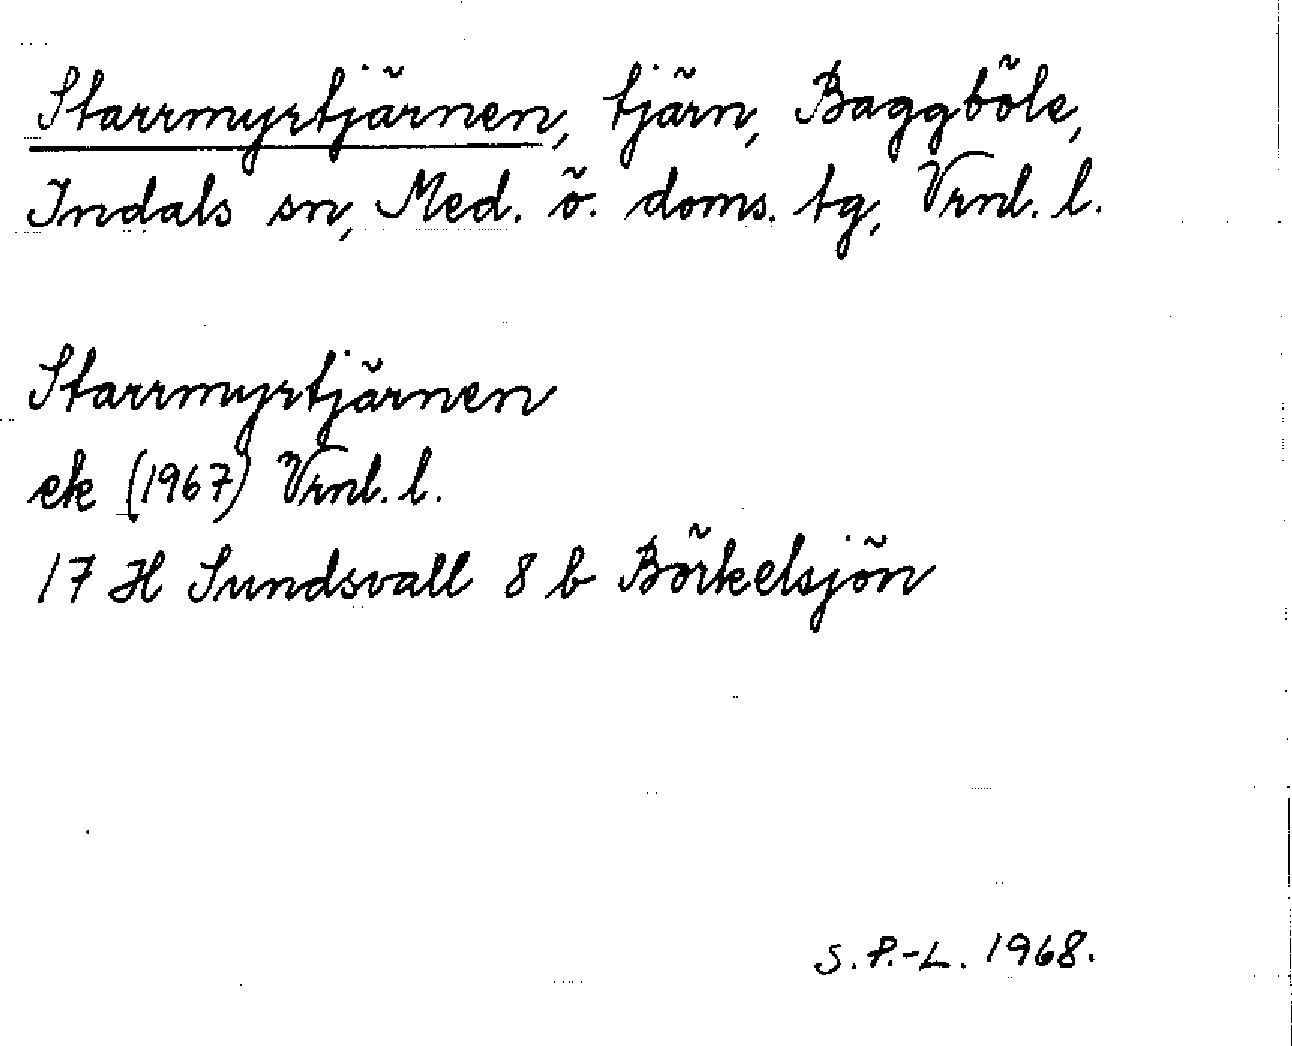 Starrmyrtjärnen, tjärn, Baggböle,
Indals sn, Med. ö. doms. tg, Vrnl. l.
Starrmyrtjärnen
ek (1967) Vrnl. l.
17 H Sundsvall 8 b Börkelsjön
S. P.-L. 1968.